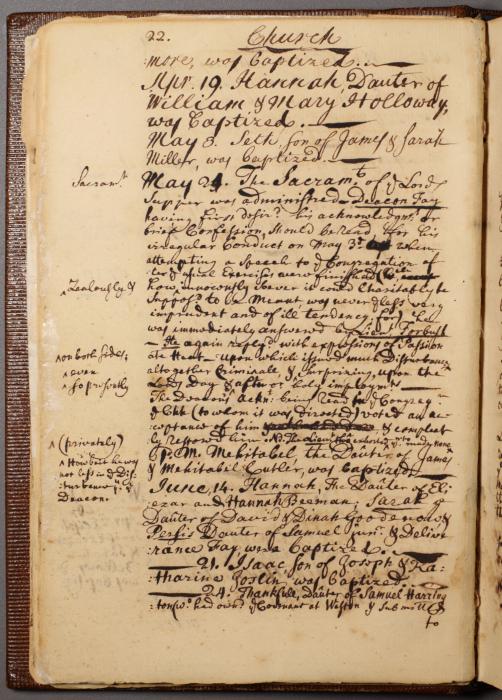 22. Church
more, was Baptized.
Apr. 19. Hannah, Dauter of
William & Mary Holloway,
was Baptized.
May 3. Seth, son of James & Sarah
Miller, was Baptized.
Sacramt.
May 24. The Sacramt of ye Lords
Supper was administred. Deacon Fay
having first desird his acknowledgmt or
brief Confession, should be read for his
irregular Conduct on May 3d when
attempting a Speech to ye Congregation
ter ye usual Exercises were finished (
how innocently soever it could charitably be
Supposd to be Meant was nevertheless very
imprudent and of ill tendency, for) he
was immediately answered by Lieut Forbush
He again reply'd with expressions of Passion
ate Heat upon which issued much Disturbance
altogether Criminale, & Surprizing, upon the
Lords Day & after holy imployment
^Zealously &
^on both sides,
^even
^so presently
The Deacons Ackn: being read to ye Congreg
& Chh (to whom it was directed) voted an ac
ceptance of him & compleat
ly restored him
^(privately)
^Howbeit he was
not less in ye Dis
turbance yn ye
Deacon.
P. M. Mehitabel the Dauter of James
& Mehitabel Cutler, was baptized.
June, 14. Hannah, The Dauter of El:
ezar and Hannah Beeman: Sarah ye
Dauter of David & Dinah Goodenow &
Persis Dauter of Samuel junr. & Delive
rance Fay, were Baptized.
21. Isaac son of Joseph & Ka
tharine Joslin, was Baptized.
24. Thankfull, Dauter of Samuel Harring
ton (wo. had ownd ye Covenant at Weston & submitted
to